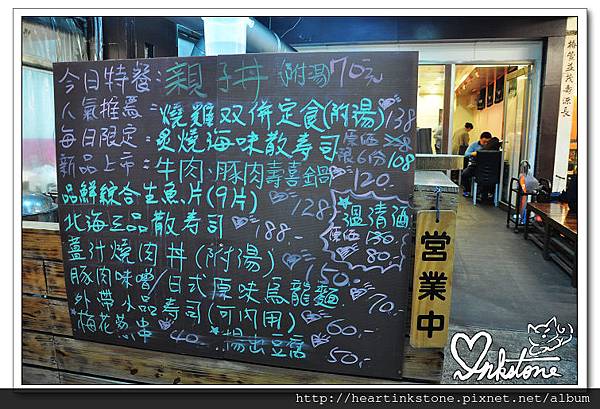 今日特餐:親子丼(附湯)70元
人氣推薦:燒雞双併定食(附湯)138
每日限定:炙燒海味散壽司 限6份 108
新品上市:牛肉、豚肉壽喜鍋 120.
品鮮綜合生魚片(9片) 128
北海三品散壽司 188.
薑汁燒肉丼(附湯) 150.
豚肉味噌/日式原味烏龍麵 70.
外帶小品壽司(可內用) 60.
*梅花 串 40. *揚出豆腐 50.
*溫清酒
130.
80.
營業中
椿萱並茂壽源長
Inkstone
http://heartinkstone.pixnet.net/album